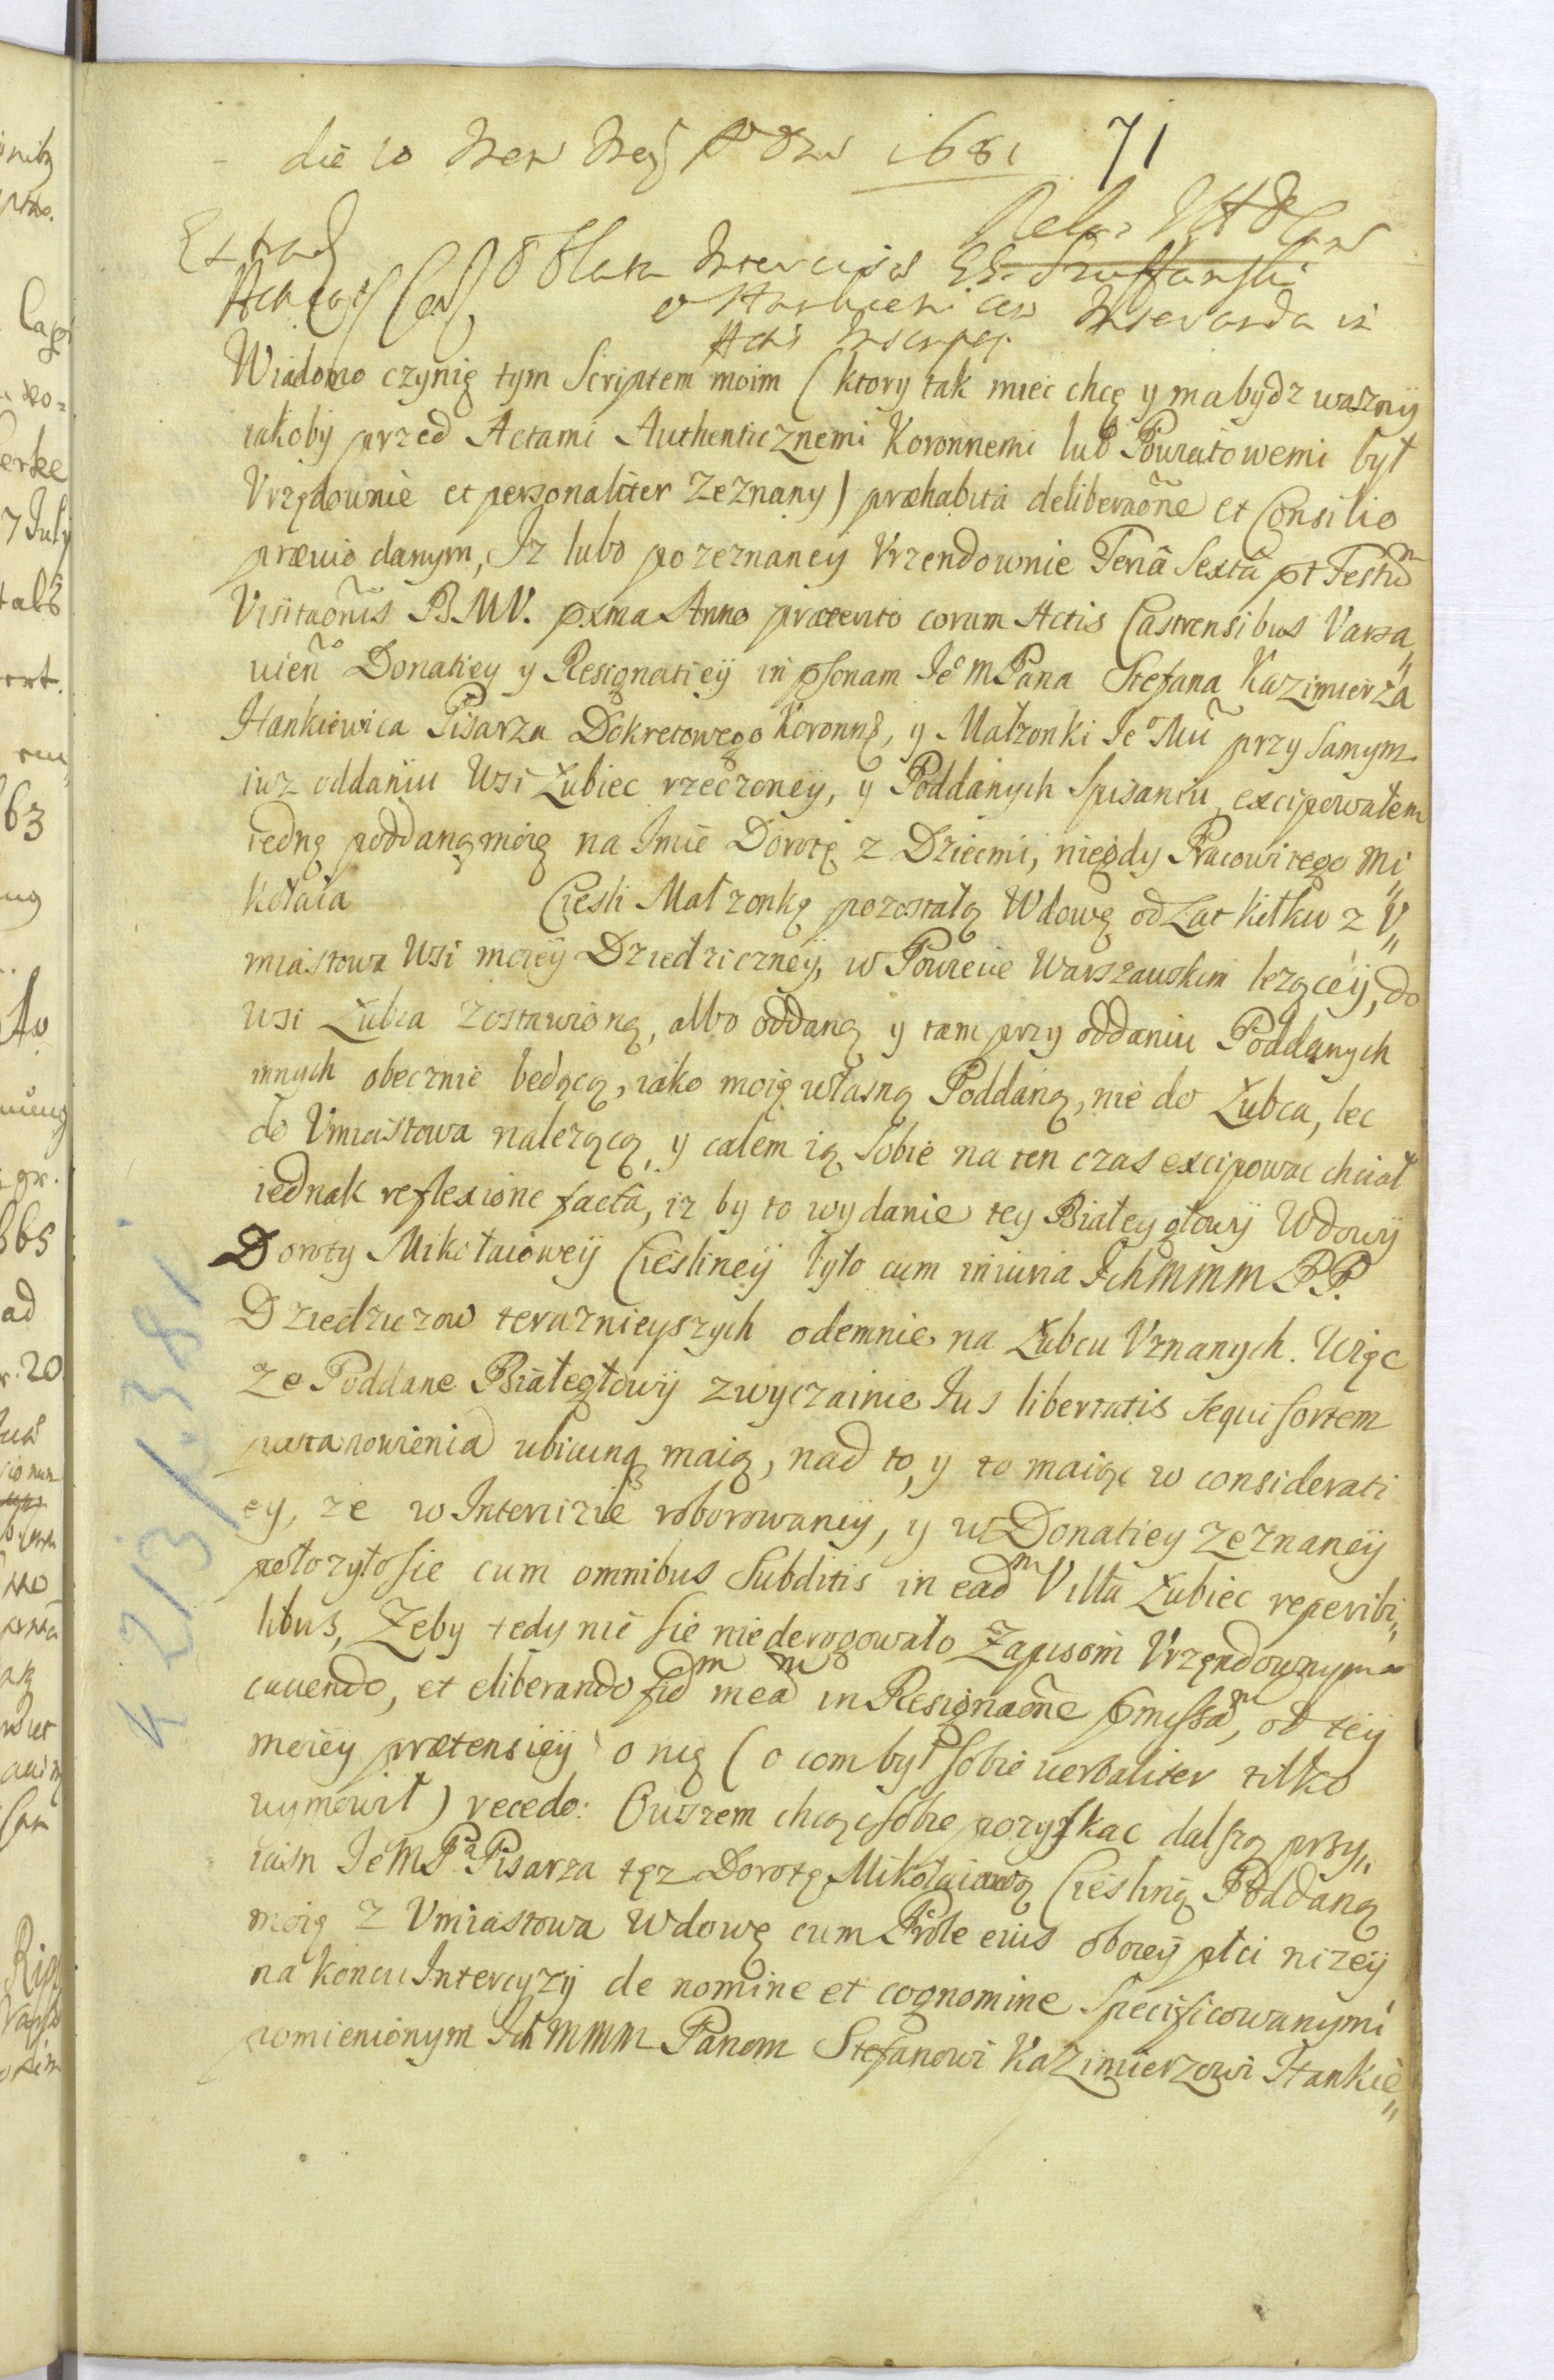 die 10 1681 71
Oblata
Actis
Wiadomo czynię tym Scriptem moim (ktory tak miec chcę y ma bydz wazny
iakoby przed Actami Authenticznemi Koronnemi lub Powiatowemi był
Vrzędownie et personaliter zeznany) præhabita deliberaoñe et Consilio
præuio danym, Iz lubo po zeznaney Vrzendownie Feriâ Sextâ pt Festum
Visitaoñis B.M.V. pxma Anno præterito coram Actis Castrensibus Varsa„
uień Donatiey y Resignatieÿ in psonam Ie m Pana Stefana Kazimierza
Hankiewica Pisarza Dekretowego Koronng, y Małzonki Ie Mu przy samym
iuz oddaniu Wsi Łubiec rzeczoney, y Poddanych Spisaniu, excipowałem
iedną poddaną moię na Imie Dorotę z Dziecmi, niegdy Pracowitego Mi„
kołaia Ciesli Małzonkę pozostałą Wdowę od Lat kilku z V„
miastowa Wsi moieÿ Dziedziczneÿ, w Powiecie Warszauskim lezącéÿ, do
Wsi Łubca zostawioną, albo oddaną y tam przy oddaniu Poddanych
innych obecznie bedącą, iako moię własną Poddaną, nie do Łubca, lec
do Vmiastowa nalezącą, y całem ią sobie na ten czas excipowac chciał
iednak reflexione factâ, iz by to wydanie tey Białeygłowÿ Wdowÿ
Doroty Mikołaioweÿ Ciesline​ÿ było cum iniuria Ichmmm PP.
Dziedziczow teraznieyszych odemnie na Łubcu Vznanych. Więc
ze Poddane Białegłowÿ zwyczainie Ius libertatis sequi sortem
postanowienia ubicunq maią, nad to, y to maiąc w considerati
ey, ze w Intercizie roborowaneÿ, y w Donatiey zeznaneÿ
połozyło sie cum omnibus Subditis in eadm Villa Łubiec reperibi„
libus, Zeby tedy nic sie nie derogowało Zapisom Vrzędownym
cauendo, et eliberando fidm meam in Resignaoñe pmissam, od teÿ
moieÿ prætensieÿ o nię (o com był sobie verbaliter tilko
wymowił) recedo: Owszem chcąc sobie pozyskac dalszą przy„
iazn Ie M P. Pisarza tęz Dorotę Mikołaiową Cieslinę Poddaną
moię z Vmiastowa Wdowę cum Prole eius oboieÿ płci nizeÿ
na koncu Intercyzÿ de nomine et cognomine Specificowanymi
pomienionym Ich mmm Panom Stefanowi Kazimierzowi Hankie„